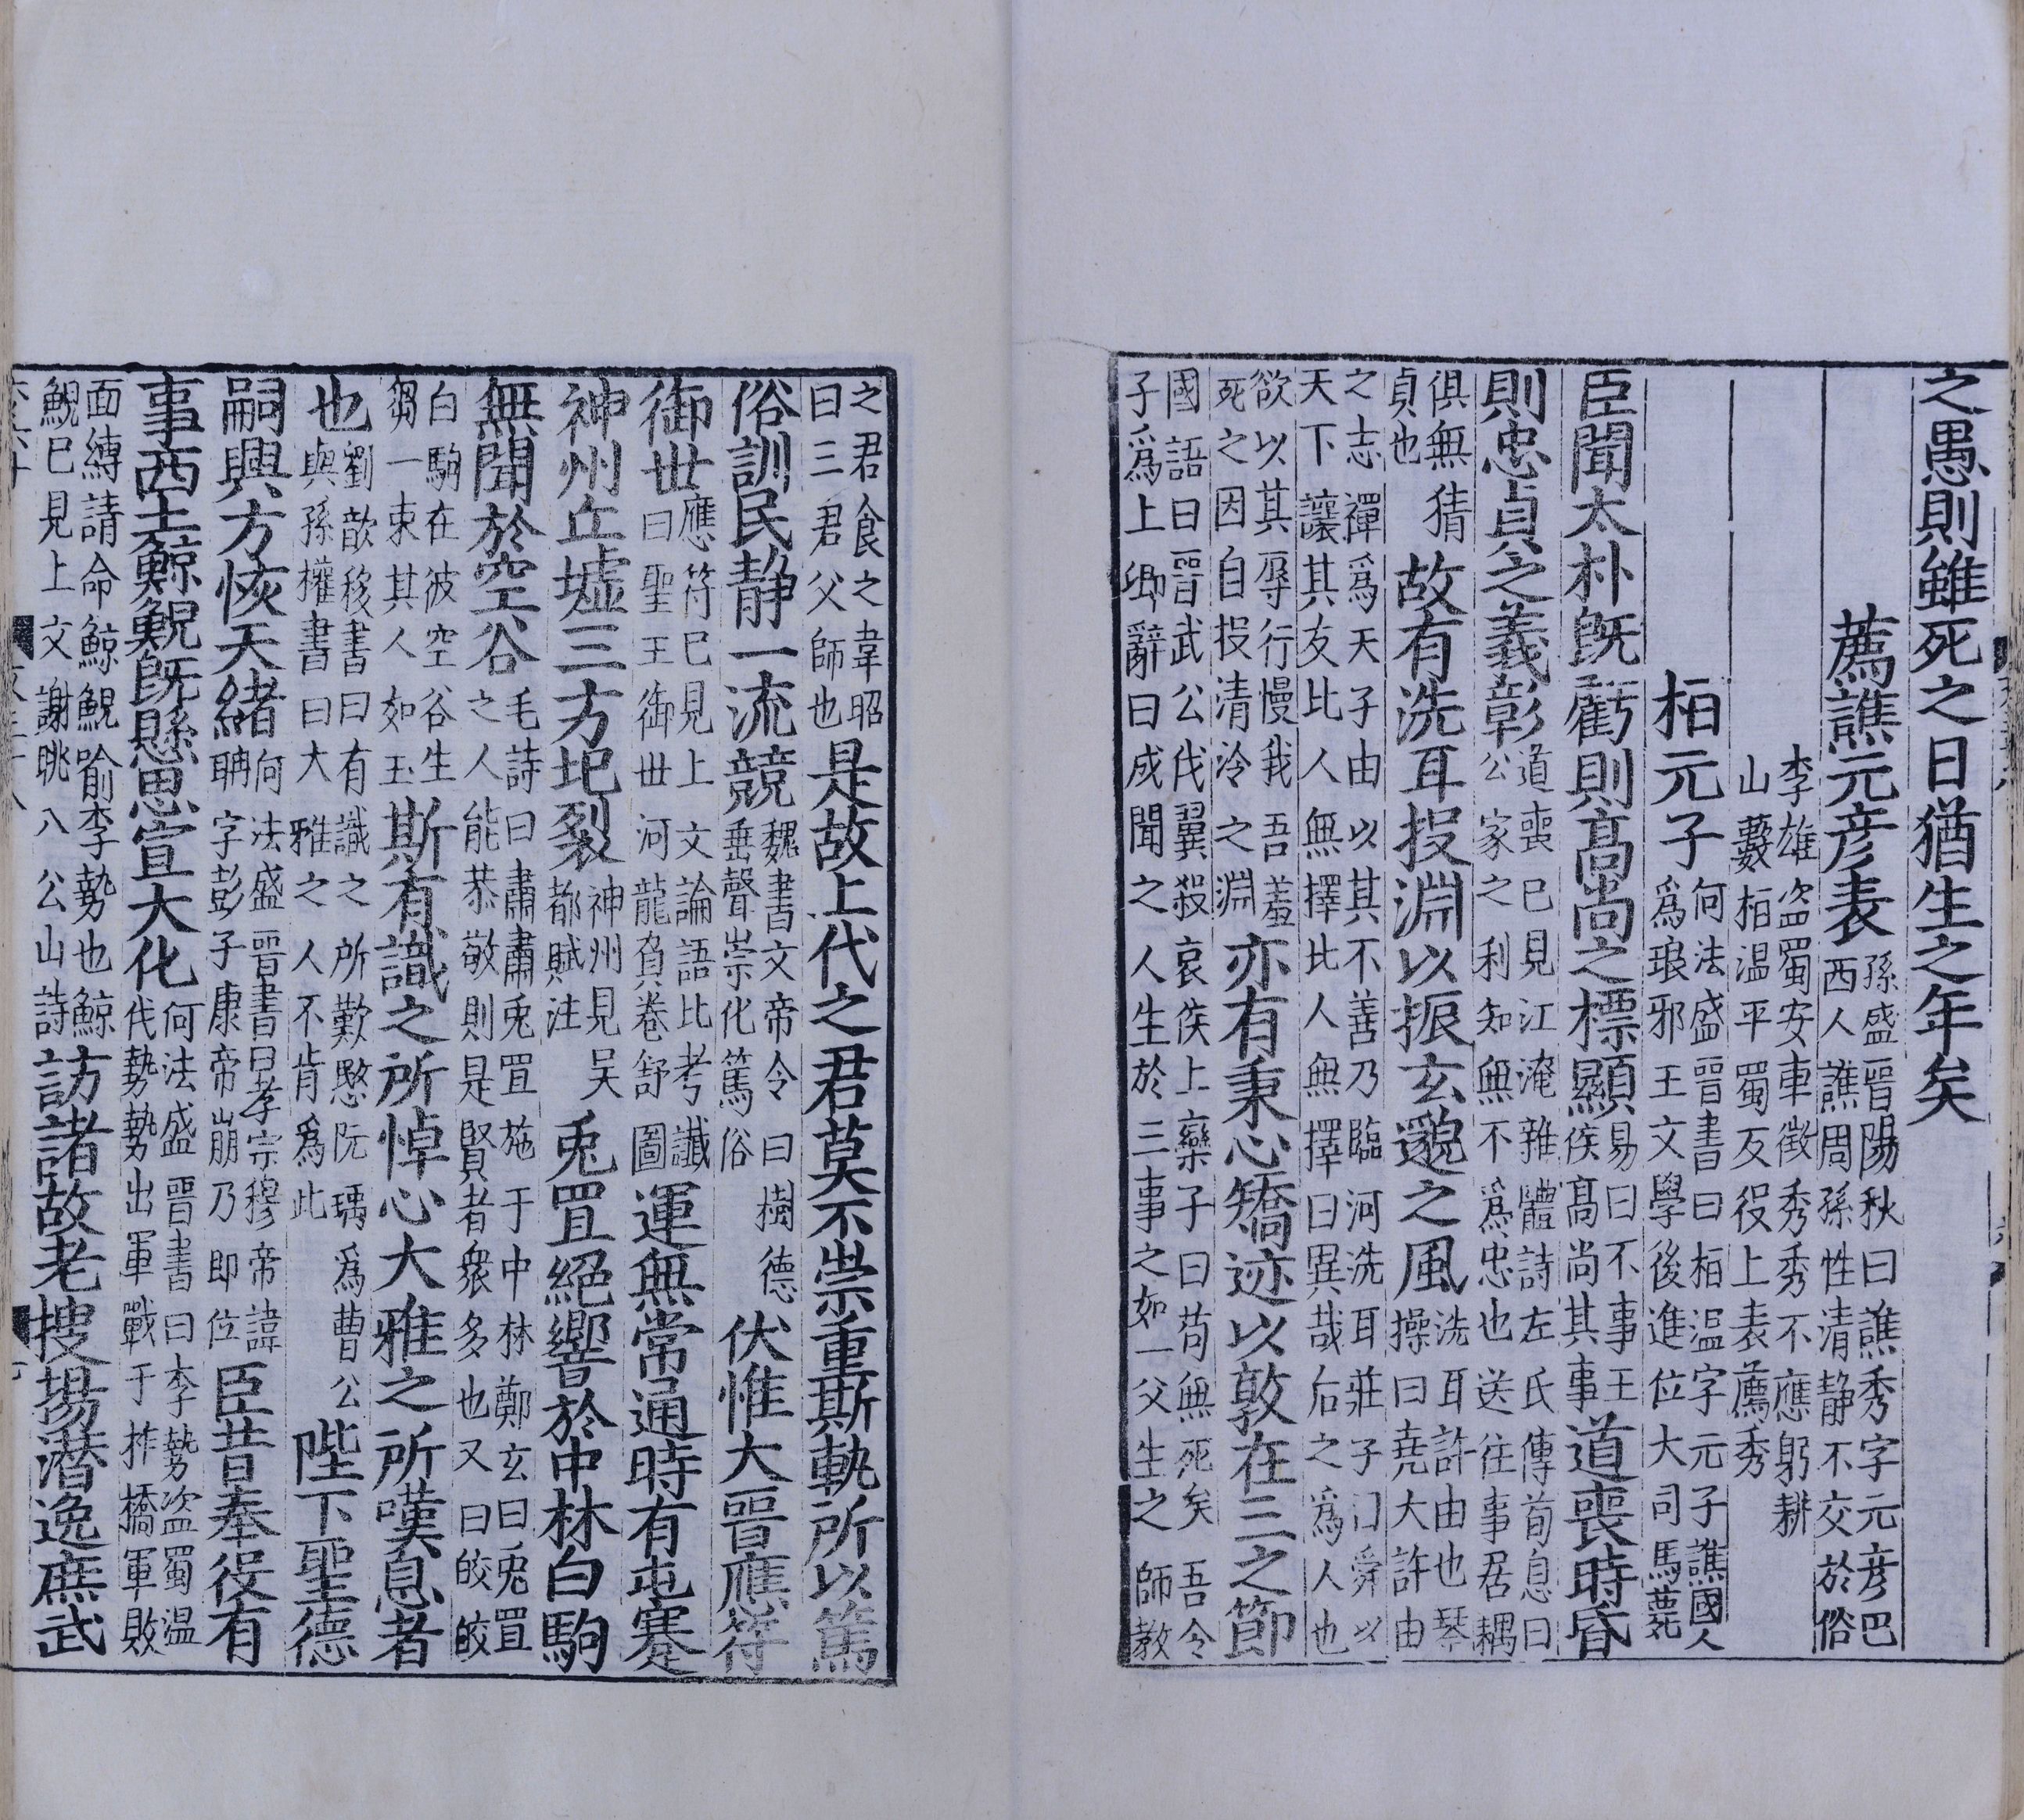 之愚則雖死之日猶生之年矣
薦譙元彦表孫盛晉陽秋曰譙秀字元彦巴西人譙周孫性清静不交於俗
李雄盗蜀安車徵秀秀不應躬耕山藪桓温平蜀反役上表薦秀
桓元子何法盛晉書曰桓温字元子譙國人爲琅邪王文學後進位大司馬薨
臣聞太朴旣虧則髙尚之標顯易曰不事王侯髙尚其事道喪時昏
則忠貞之義彰道喪已見江淹雜體詩左氏傳荀息曰公家之利知無不爲忠也送往事居耦
俱無猜貞也故有洗耳投淵以振玄邈之風洗耳許由也琴操曰堯大許由
之志禪爲天子由以其不善乃臨河洗耳莊子曰舜以天下讓其友比人無擇比人無擇曰異哉后之爲人也
欲以其辱行慢我吾羞死之因自投清泠之淵亦有秉心矯迹以敦在三之節
國語曰晉武公伐翼殺哀侯止欒子曰苟無死矣吾令子爲上卿辭曰成聞之人生於三事之如一父生之師教
之君食之韋昭曰三君父師也是故上代之君莫不崇重斯軌所以篤
俗訓民静一流競魏書文帝令曰樹德垂聲崇化篤俗伏惟大晉應符
御世應符已見上文論語比考讖曰聖王御世河龍負卷舒圖運無常通時有屯蹇
神州丘墟三方圮裂神州見吴都賦注兎罝絕響於中林白駒
無聞於空谷毛詩曰肅肅兎罝施于中林鄭玄曰兎罝之人能恭敬則是賢者衆多也又曰皎皎
白駒在彼空谷生芻一束其人如玉斯有識之所悼心大雅之所嘆息者
也劉歆移書曰有識之所歎愍阮瑀爲曹公與孫權書曰大雅之人不肯爲此陛下聖德
嗣興方恢天緒何法盛晉書曰孝宗穆帝諱聃字彭子康帝崩乃即位臣昔奉役有
事西土鯨鯢旣懸思宣大化何法盛晉書曰李勢盗蜀温伐勢勢出軍戰于柞橋軍敗
面縛請命鯨鯢喻李勢也鯨鯢已見上文謝眺八公山詩訪諸故老搜揚潜逸庶武